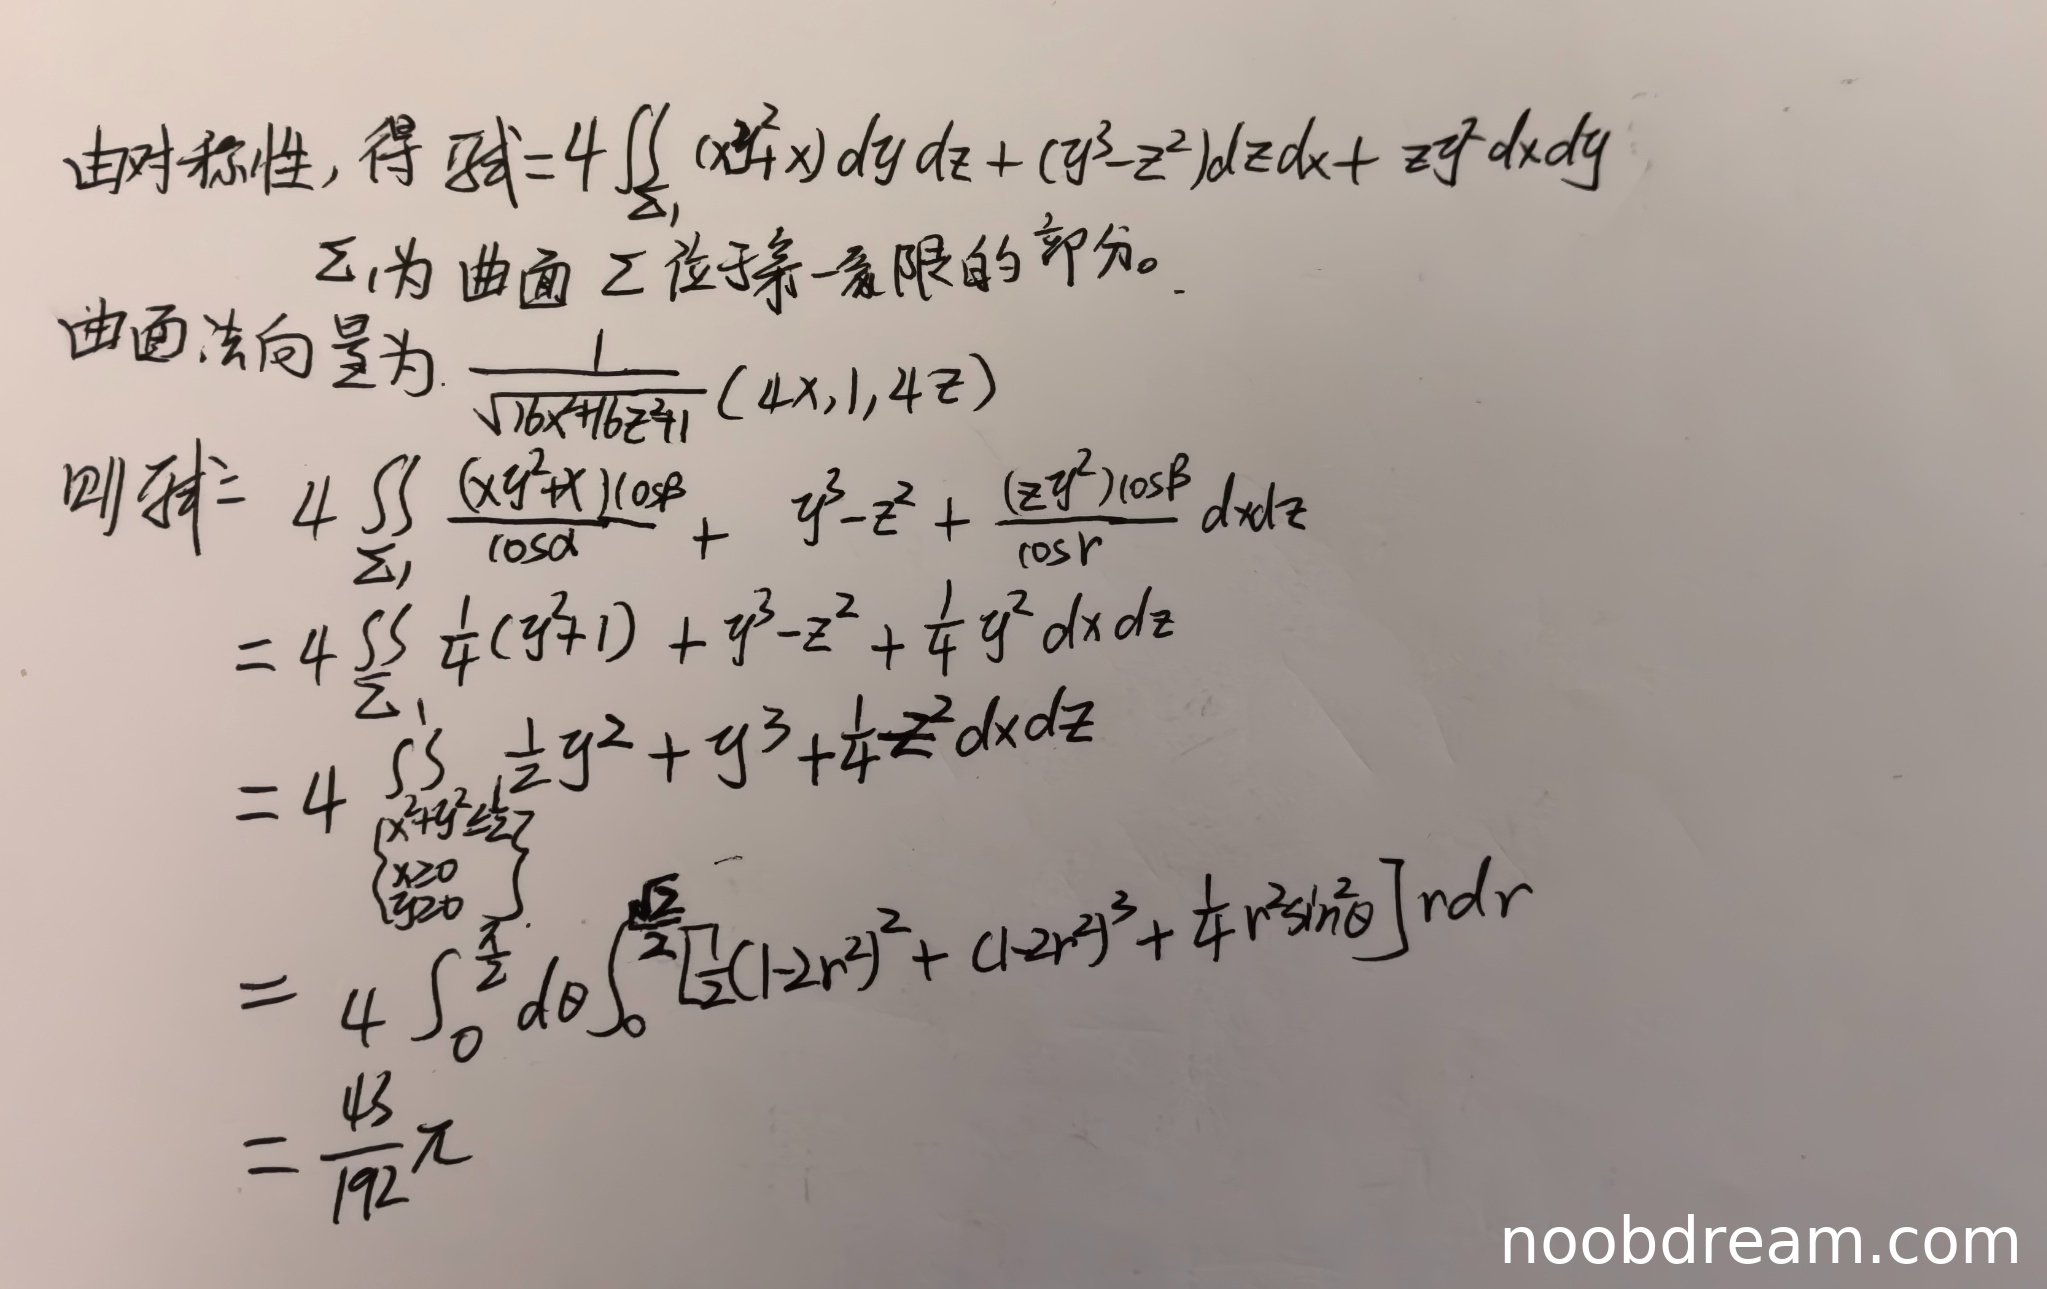 由对称性, 得 原式=4∬_{Σ₁} (xy²+x)dydz+(y³-z²)dzdx+zy²dxdy
Σ₁为曲面Σ位于第一卦限的部分。
曲面法向量为 1/√(16x²+16z²+1) (4x,1,4z)
则原式= 4∬_{Σ₁} (xy²+x)cosβ/cosα + y³-z² + (zy²)cosβ/cosr dxdz
=4∬_{Σ₁} 1/4(y²+1)+y³-z²+1/4 y²dxdz
=4∬_{{x²+y²≤1/2, x≥0, y≥0}} 1/2 y²+y³+1/4-z²dxdz
= 4∫₀^{π/2} dθ∫₀^{√2/2} [1/2(1-2r²)²+(1-2r²)³+1/4 r²sin²θ]rdr
= 43/192 π
noobdream.com